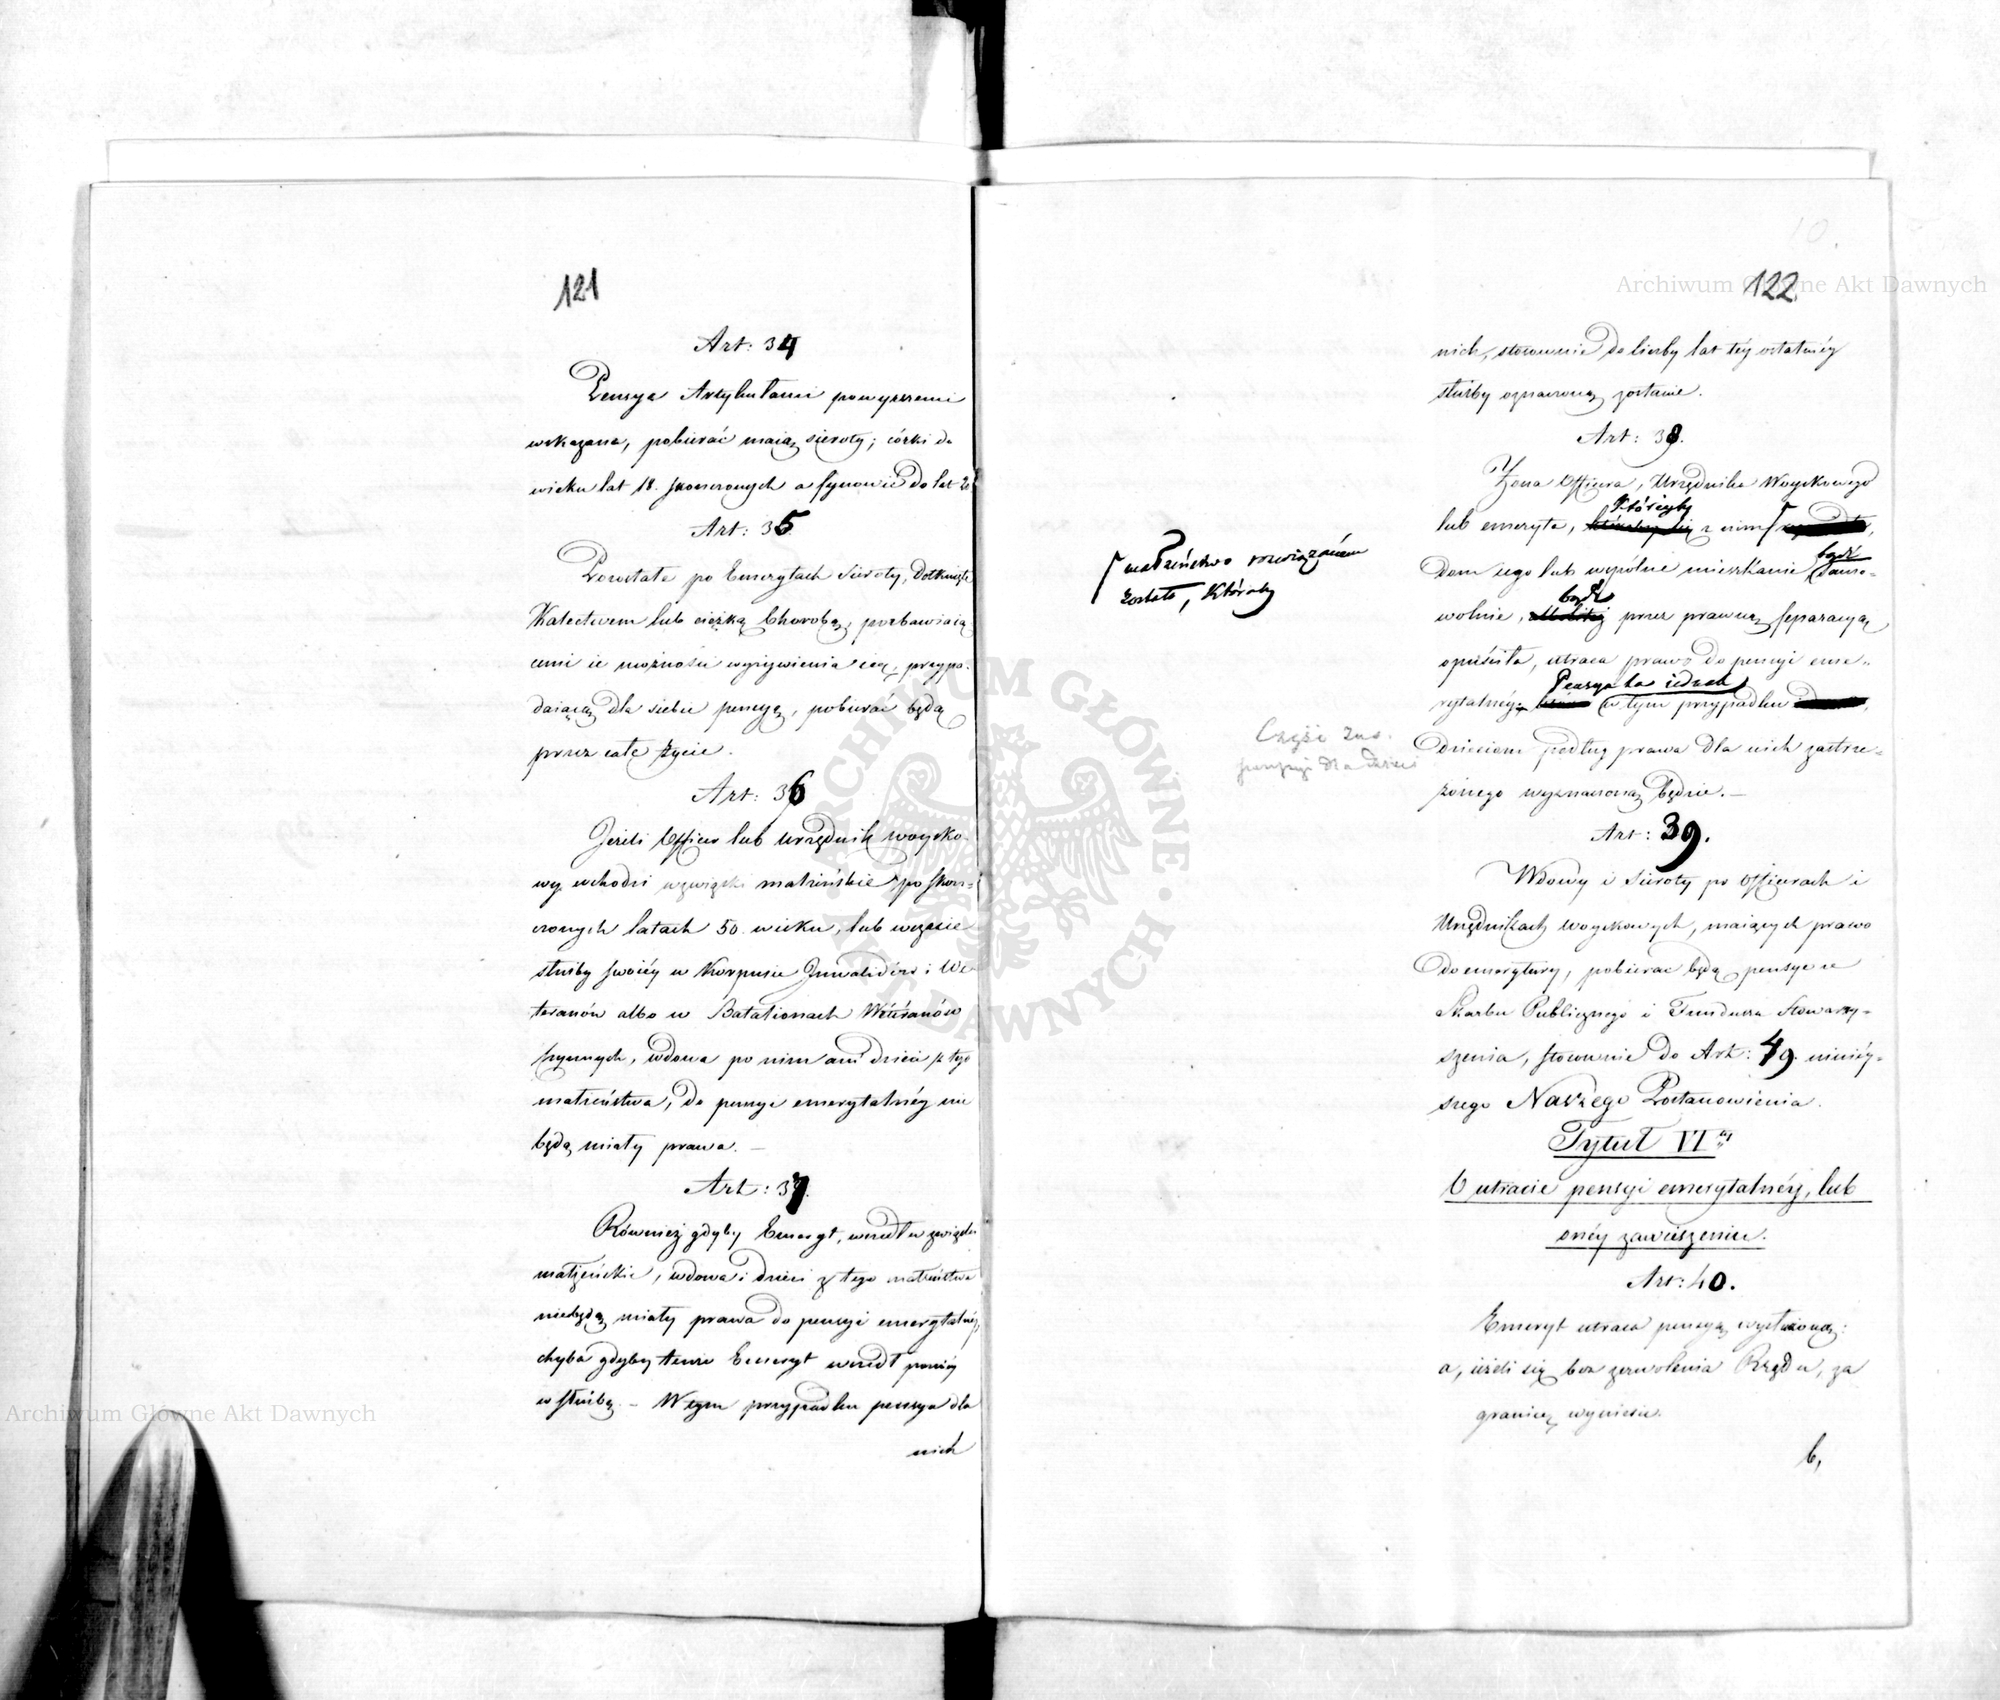 121
Art: 34
Pensye Artykułami powyższemi
wskazane, pobierać maią sieroty; córki do
wieku lat 18. skończonych a synowie do lat 20
Art: 35
Pozostałe po Emerytach sieroty, dotknięte
Kalectwem lub cięźką Chorobą, pozbawiaią
cemi ie możności wyżywienia się, przypa-
daiącą dla siebie pensyę, pobierać będą
przez całe życie.
Art: 36
Jeżeli Officer lub Urzędnik woysko-
wy wchodzi w związki małżeńskie po skoń-
czonych latach 50. wieku, lub w czasie
służby swoiéy w Korpusie Inwalidów i We-
teranów albo w Batalionach Weteranów
czynnych, wdowa po nim ani dzieci z tego
małżeństwa, do pensyi emerytalnéy nie
będą miały prawa. —
Art: 37.
Również gdyby Emeryt, wszedł w związki
małżeńskie, wdowa i dzieci z tego małżeństwa
niebędą miały prawa do pensyi emerytalnéy,
chyba gdyby tenże Emeryt wszedł poniéy
w służbę. — W tym przypadku pensya dla
nich
10.
122
nich, stosownie do liczby lat téy ostatniéy
służby oznaczoną zostanie.
Art: 38.
Żona Officera, Urzędnika Woyskowego
któréyby
lub emeryta, z nim
małżeństwo rozwiązaném
zostało, któraby
bądź
Dom iego lub wspólne mieszkanie samo-
bądź
wolnie, przez prawną separacyą
opuściła, utraca prawo do pensyi eme-
Pensya ta iednak
rytalnéy; w tym przypadku
Część
pensyi dla dzieci
dzieciom podług prawa dla nich zastrze-
żonego wyznaczoną będzie. —
Art: 39.
Wdowy i sieroty po Officerach i
Urzędnikach woyskowych, maiących prawo
do emerytury, pobierać będą pensye ze
Skarbu Publicznego i Fundusza Stowarzy-
szenia, stosownie do Art: 49. ninieÿ-
szego Naszego Postanowienia.
Tytuł VI.ty
O utracie pensyi emerytalnéy, lub
onéy zawieszeniu.
Art: 40.
Emeryt utraca pensyą wysłużoną:
a, ieżeli się bez zezwolenia Rządu, za
granicę wyniesie.
b,
Archiwum Główne Akt Dawnych
Archiwum Główne Akt Dawnych
ARCHIWUM GŁÓWNE AKT DAWNYCH